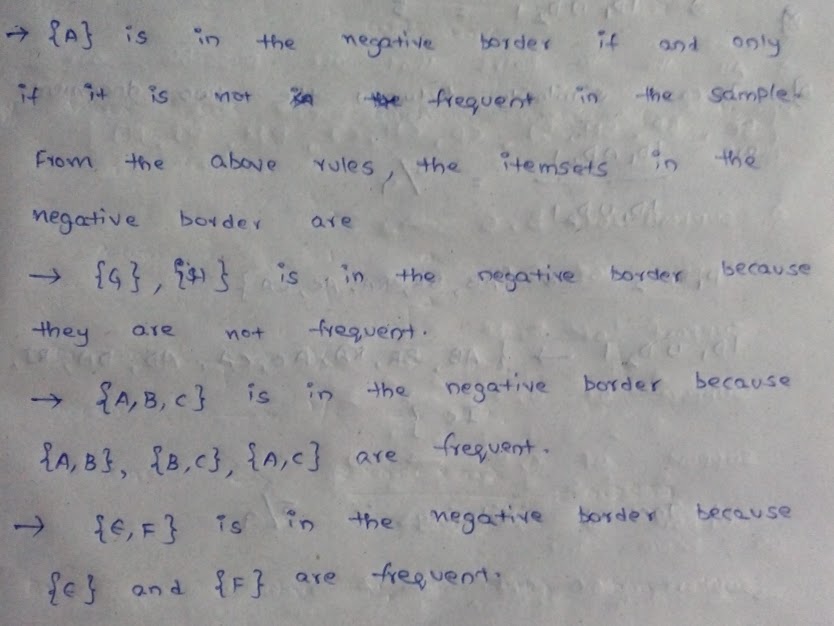 → {A} is in the negative border if and only
if it is not frequent in the sample.
From the above rules, the itemsets in the
negative border are
→ {G}, {H} is in the negative border, because
they are not frequent.
→ {A, B, C} is in the negative border because
{A, B}, {B, C}, {A, C} are frequent.
→ {E, F} is in the negative border because
{E} and {F} are frequent.